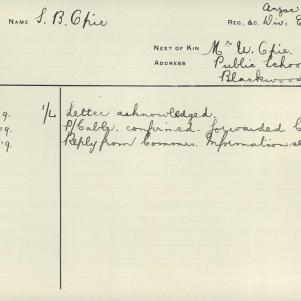 Anzac
NAME S. B. Opie REG. &C. Div.
NEXT OF KIN Mr W. Opie.
ADDRESS Public School
Blackwood
9. 1/L Letter acknowledged.
9. P/Cable. confirmed. Forwarded
9. Reply from Commrs. Information